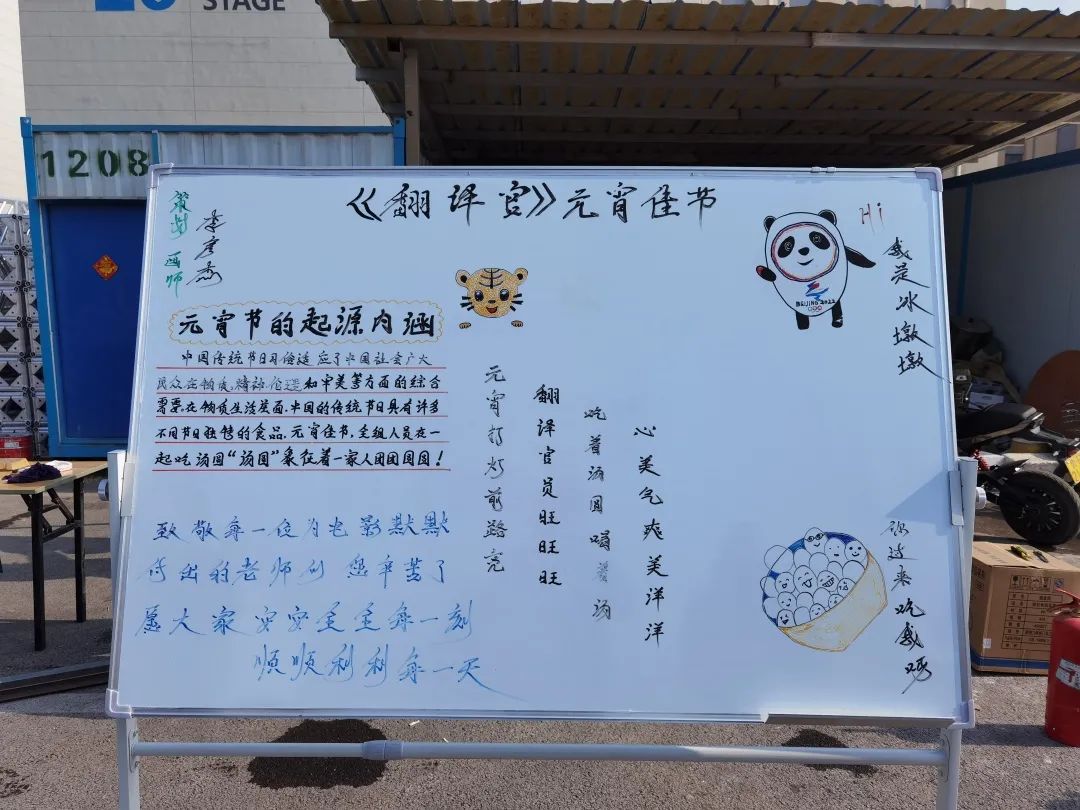 STAGE
1208
《翻译官》元宵佳节
策划
画师
元宵节的起源内涵
中国传统节日习俗适应了中国社会广大
民众在物质,精神伦理和审美等方面的综合
需要.在物质生活层面.中国的传统节日具有许多
不同节日独特的食品.元宵佳节.全组人员在一
起吃汤圆“汤圆”象征着一家人团团圆圆!
致敬每一位为电影默默
付出的老师们 您辛苦了
愿大家安安全全每一刻
顺顺利利每一天
元宵打灯前路亮
翻译官员旺旺旺
吃着汤圆喝着汤
心美气爽美洋洋
Hi
我是冰墩墩
BEIJING 2022
过来吃我呀